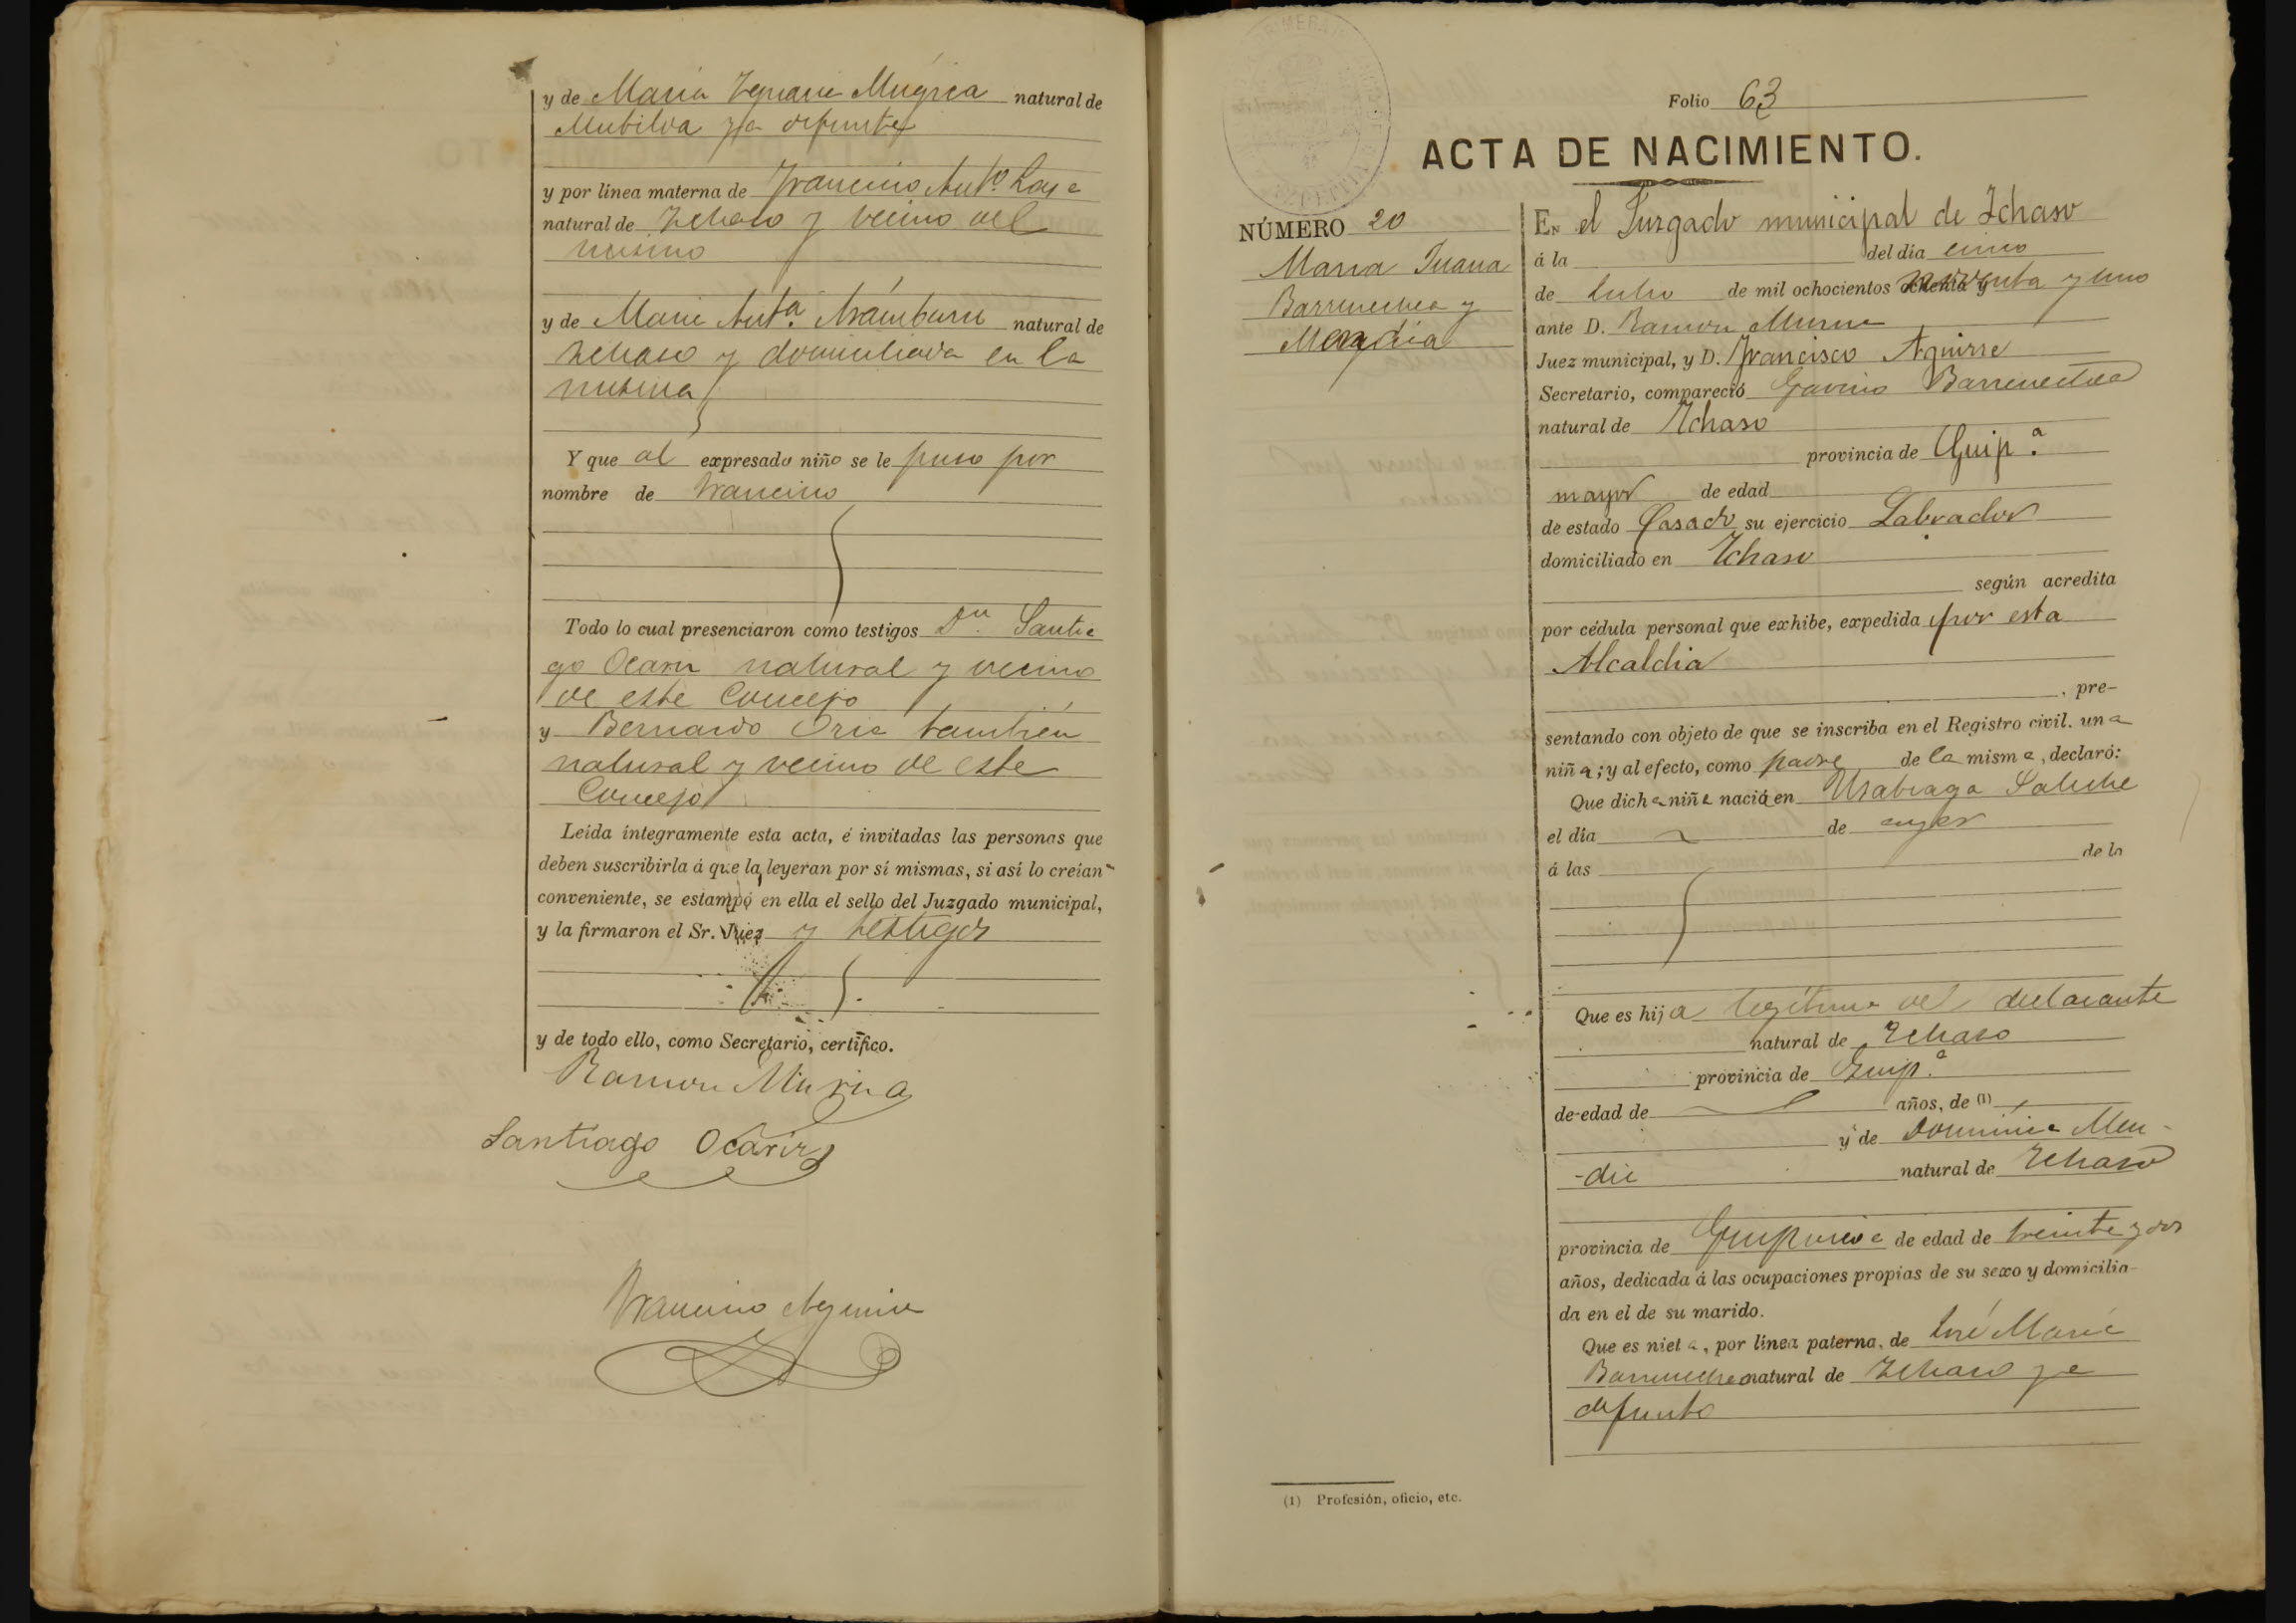 y de María Ignacia Mugica natural de
Mutiloa ya difunta
y por línea materna de Francisco Antº Loya
natural de Ichaso y vecino del
mismo
y de María Antª Aramburu natural de
Ichaso y domiciliada en la
misma
Y que al expresado niño se le puso por
nombre de Francisco
Todo lo cual presenciaron como testigos Dn. Santia
go Ocariz natural y vecino
de este Concejo
y Bernardo Oria también
natural y vecino de este
Concejo
Leída íntegramente esta acta, é invitadas las personas que
deben suscribirla á que la leyeran por sí mismas, si así lo creían
conveniente, se estampó en ella el sello del Juzgado municipal,
y la firmaron el Sr. Juez y testigos
y de todo ello, como Secretario, certifico.
Ramon Murua
Santiago Ocariz
Francisco Aguirre
Folio 63
ACTA DE NACIMIENTO.
NÚMERO 20
Maria Juana
Barrenechea y
Mendia
En el Juzgado municipal de Ichaso
á la del dia cinco
de Julio de mil ochocientos noventa y uno
ante D. Ramon Murua
Juez municipal, y D. Francisco Aguirre
Secretario, compareció Gavino Barrenechea
natural de Ichaso
provincia de Guip.ª
mayor de edad
de estado Casado su ejercicio Labrador
domiciliado en Ichaso
según acredita
por cédula personal que exhibe, expedida por esta
Alcaldia
, pre-
sentando con objeto de que se inscriba en el Registro civil. una
niña; y al efecto, como padre de la misma, declaró:
Que dicha niña nació en Usabiaga
el día de ayer
á las de la
Que es hija legítima del declarante
natural de Ichaso
provincia de Guip.ª
de edad de años, de (1)
y de Dominica Men-
-dia natural de Ichaso
provincia de Guipuzcoa de edad de treinta y dos
años, dedicada á las ocupaciones propias de su sexo y domicilia-
da en el de su marido.
Que es nieta, por línea paterna, de José María
Barrenechea natural de Ichaso ya
difunto
(1) Profesión, oficio, etc.